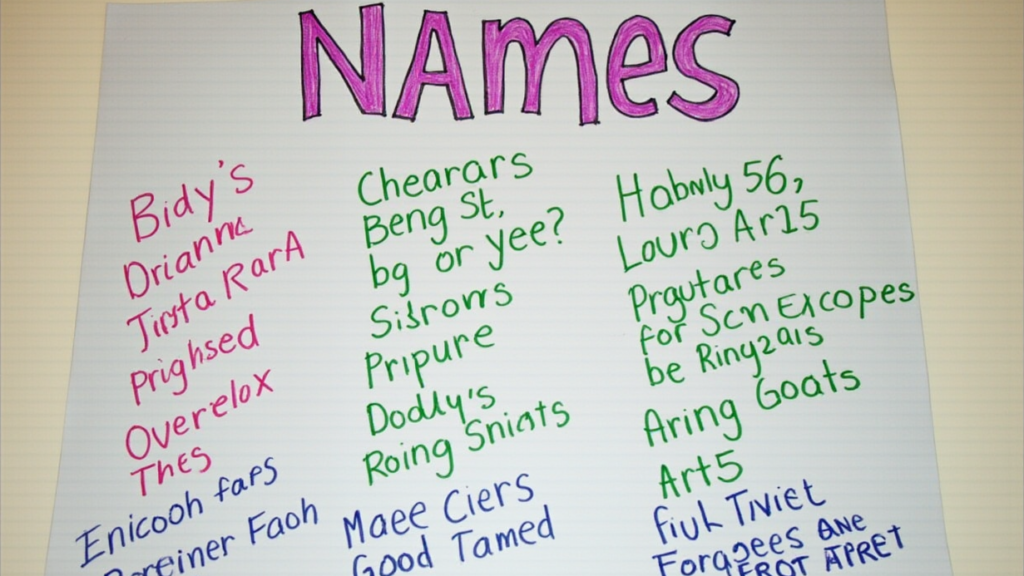 NAmes
Bidy's
Drianne
Jinsta RarA
Prighsed
Overelox
Thes
Enicooh faps
Faoh
Chearars
Beng St,
bg or yee?
Sisrows
Pripure
Dodly's
Roing Sniats
Maee Ciers
Good Tamed
Habwly 56,
Louro Ar15
Prgutares
for Scn Excopes
be Ringzais
Aring Goats
Art5
fiuh Tiviet
Foragees ane
APRET